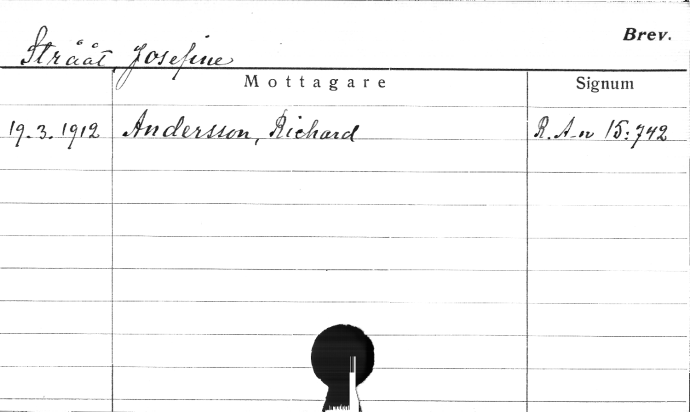 Brev.
Strååt, Josefine
Mottagare Signum
19.3.1912 Andersson, Richard R. A-n 15:742